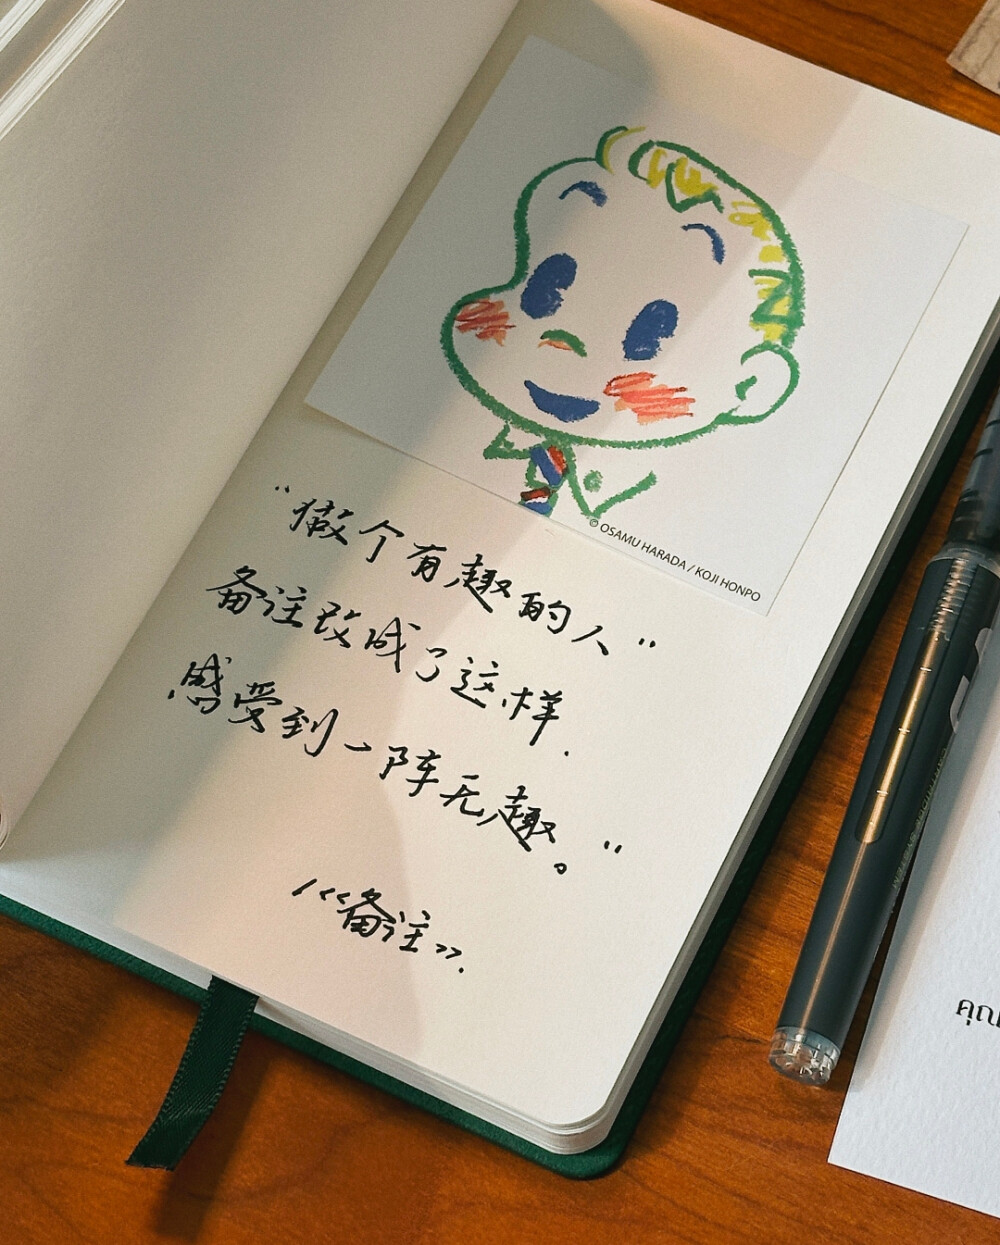 © OSAMU HARADA / KOJI HONPO
“做个有趣的人”
备注改成了这样.
感受到一阵无趣。”
/《备注》.
คุณ